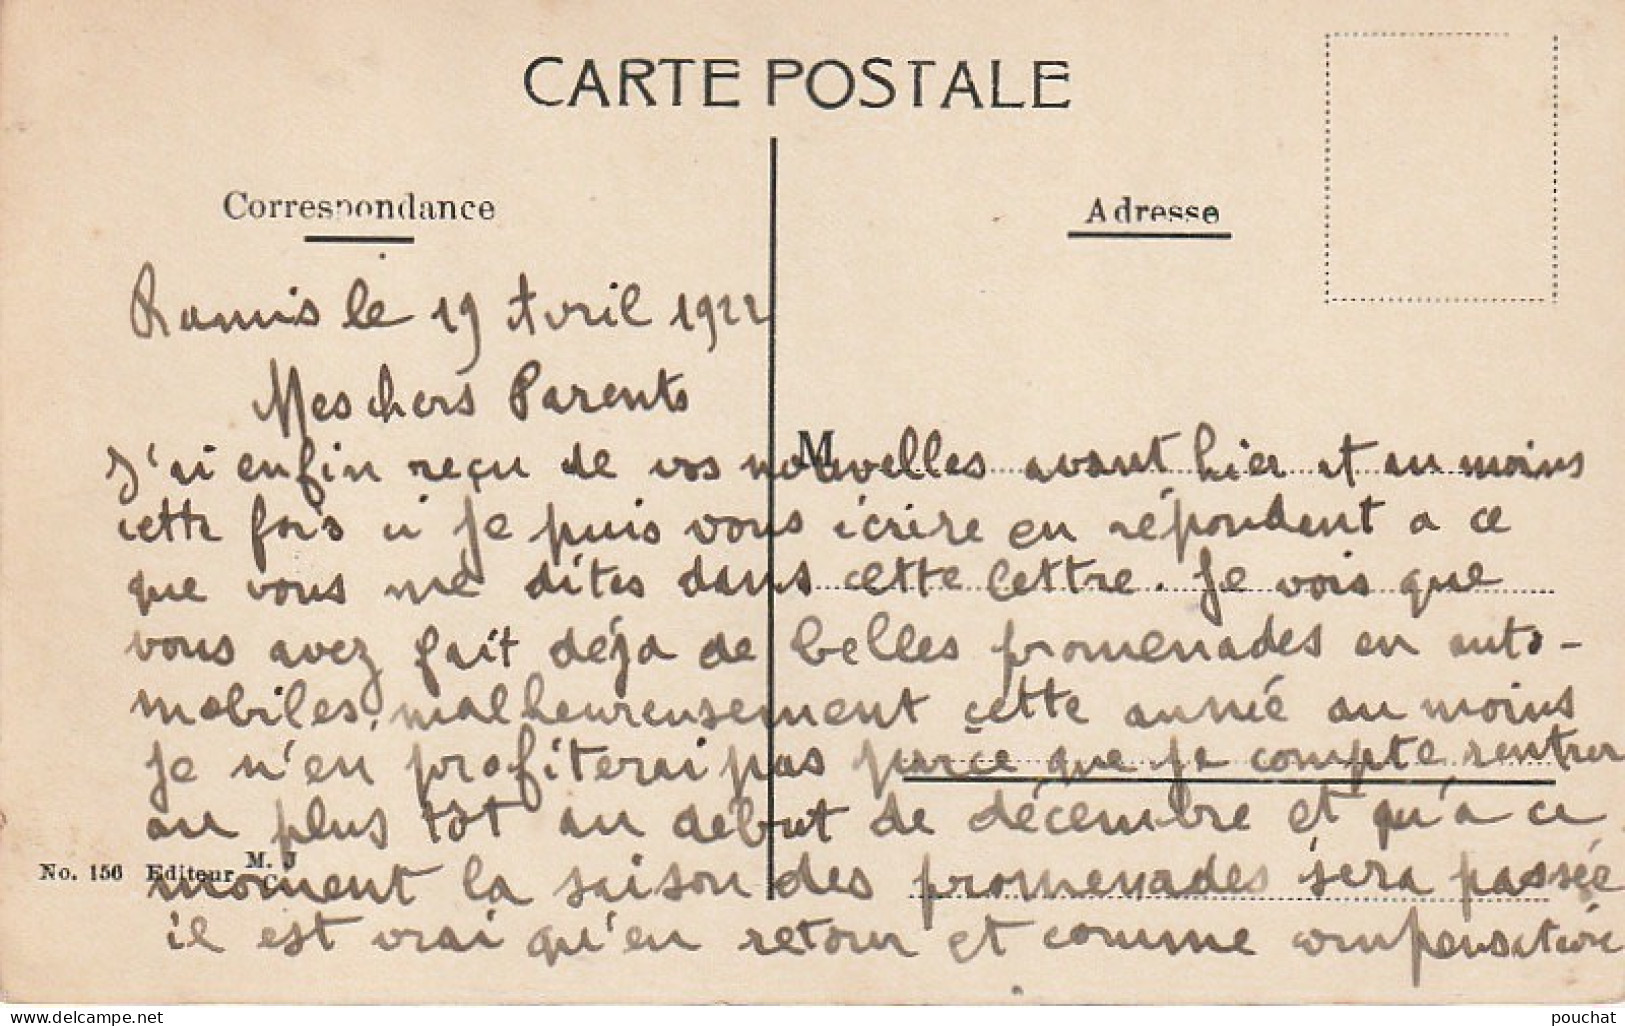 CARTE POSTALE
Correspondance
Adresse
le 19 Avril 1922
Mes chers Parents
M
J'ai enfin reçu de vos nouvelles avant hier et au moins
cette fois ci je puis vous écrire en répondent a ce
que vous me dites dans cette lettre. Je vois que
vous avez fait déja de belles promenades en auto-
mobiles, malheureusement cette année au moins
je n'en profiterai pas parce que je compte rentrer
au plus tôt au debut de décembre et qu'a ce
No. 156 Editeur M. J
C.
moment la saison des promenades sera passée
il est vrai qu'en retour et comme compensation
pouchat
www.delcampe.net